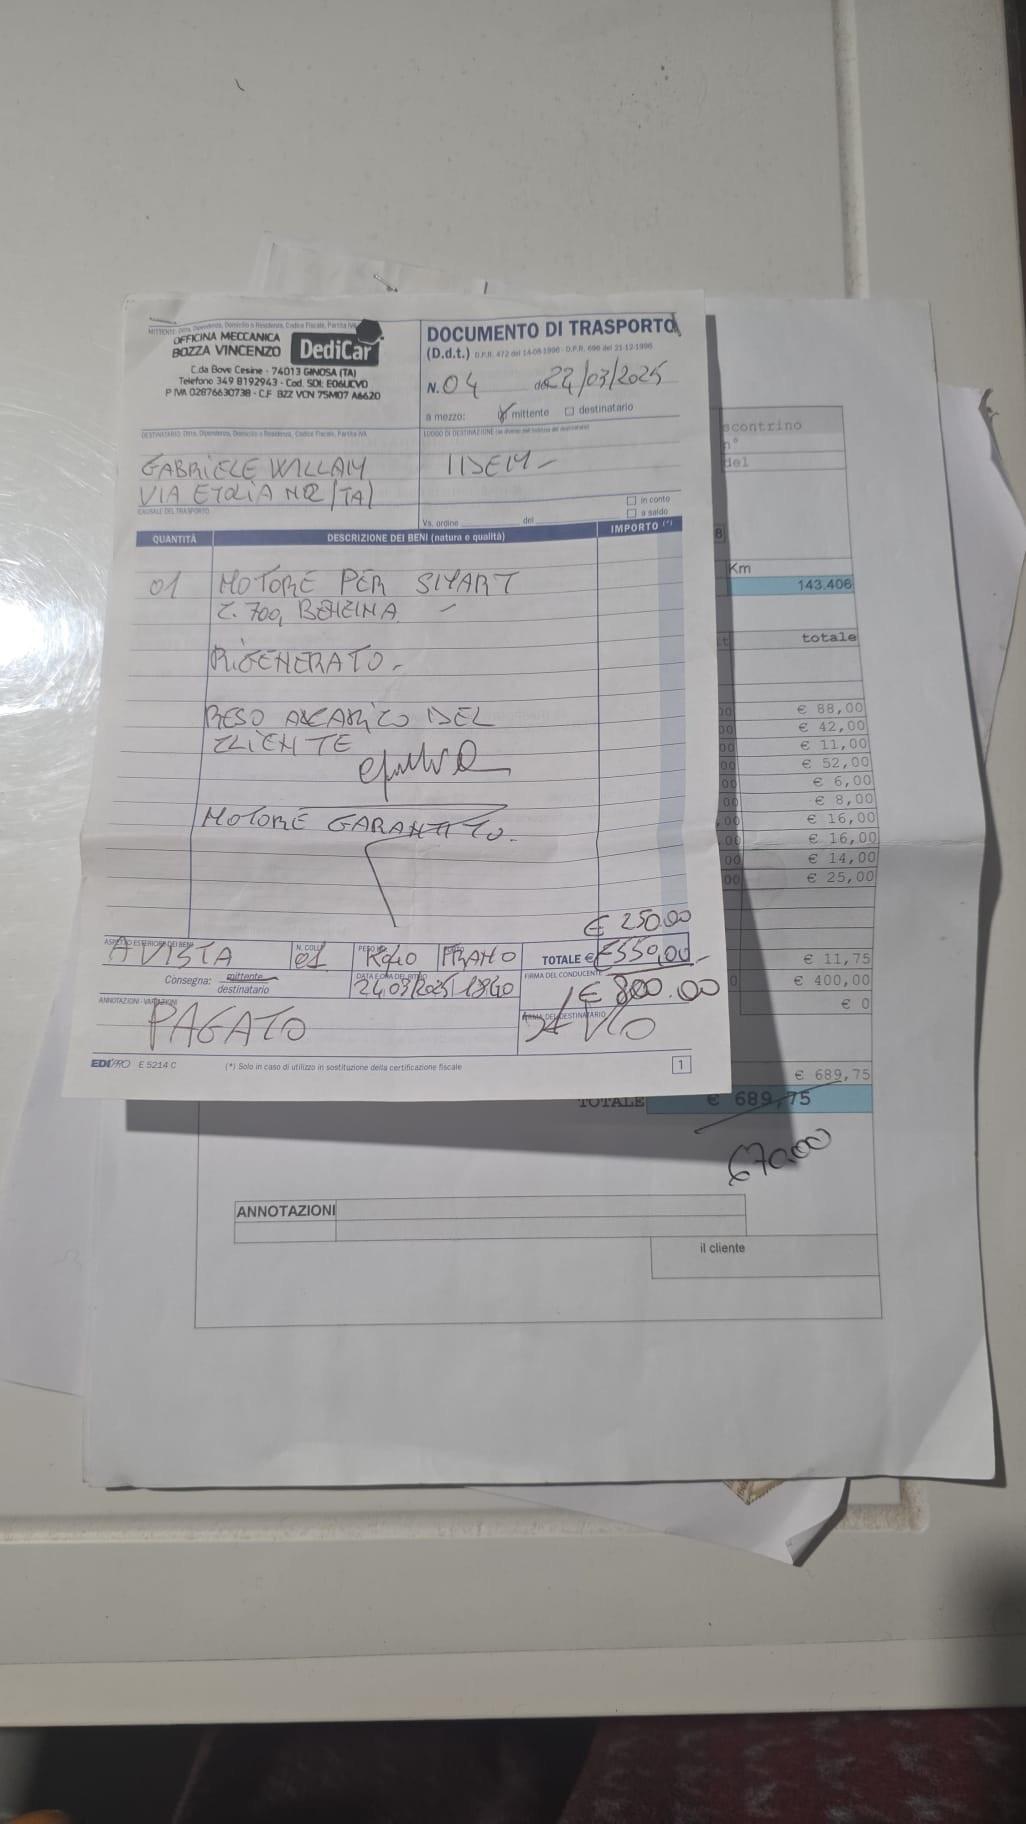 MITTENTE: Ditta, Dipendenza, Domicilio o Residenza, Codice Fiscale, Partita IVA
OFFICINA MECCANICA
BOZZA VINCENZO DediCar
C.da Bove Cesine - 74013 GINOSA (TA)
Telefono 349 8192943 - Cod. SDI: E06UCVO
P IVA 02876630738 - C.F BZZ VCN 75M07 A662O
DOCUMENTO DI TRASPORTO
(D.d.t.) D.P.R. 472 del 14-08-1996 - D.P.R. 696 del 21-12-1996
N. 04 del 22/03/2025
a mezzo: mittente destinatario
DESTINATARIO: Ditta, Dipendenza, Domicilio o Residenza, Codice Fiscale, Partita IVA
GABRIELE WILLAM
VIA ETOLIA (TA)
LUOGO DI DESTINAZIONE
IDEM -
CAUSALE DEL TRASPORTO
in conto
a saldo
Vs. ordine del
QUANTITÀ DESCRIZIONE DEI BENI (natura e qualità) IMPORTO (*)
01 MOTORE PER SMART
C. 700, BENZINA -
RIGENERATO -
RESO A CARICO DEL
CLIENTE
MOTORE GARANTITO.
€ 250.00
ASPETTO ESTERIORE DEI BENI
A VISTA
N. COLLI
01
TOTALE € €550,00
Consegna: mittente
destinatario
24.03/2025
FIRMA DEL CONDUCENTE
€ 800.00
ANNOTAZIONI - VARIAZIONI
PAGATO
FIRMA DEL DESTINATARIO
EDIPRO E 5214 C
(*) Solo in caso di utilizzo in sostituzione della certificazione fiscale
1
scontrino
n°
del
8
Km
143.406
totale
€ 88,00
€ 42,00
€ 11,00
€ 52,00
€ 6,00
€ 8,00
€ 16,00
€ 16,00
€ 14,00
€ 25,00
€ 11,75
€ 400,00
€ 0
€ 689,75
TOTALE € 689,75
670.00
ANNOTAZIONI
il cliente